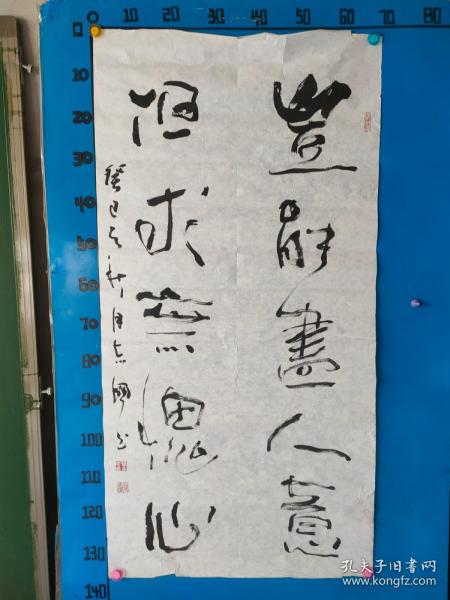 豈能盡人意
但求無愧心
癸巳之秋月志國书
0 10 20 30 40 50 60 70 80
0
10
20
30
40
50
60
70
80
90
100
110
120
130
140
孔夫子旧书网
https://www.kongfz.com